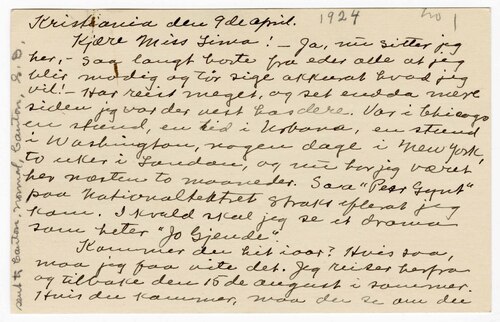 Kristiania den 9de april. 1924 no 1
Kjære Miss Sima! — Ja, nu sitter jeg
her, — saa langt borte fra eder alle at jeg
blir modig og tør sige akkurat hvad jeg
vil! — Har reist meget, og set endda mere
siden jeg var der vest hos dere. Var i Chicago
en stund, en tid i Urbana, en stund
i Washington, nogen dage i New York,
to uker i London, og nu har jeg været
her næsten to maaneder. Saa "Peer Gynt"
paa Nationalteatret straks efterat jeg
kom. I kvæld skal jeg se et drama
som heter "Jo Gjende".
Kommer du hit iaar? Hvis saa,
maa jeg faa vite det. Jeg reiser herfra
og tilbake den 15de august i sommer.
Hvis du kommer, maa du se om du
sent to Canton, normal, Canton, S. D.